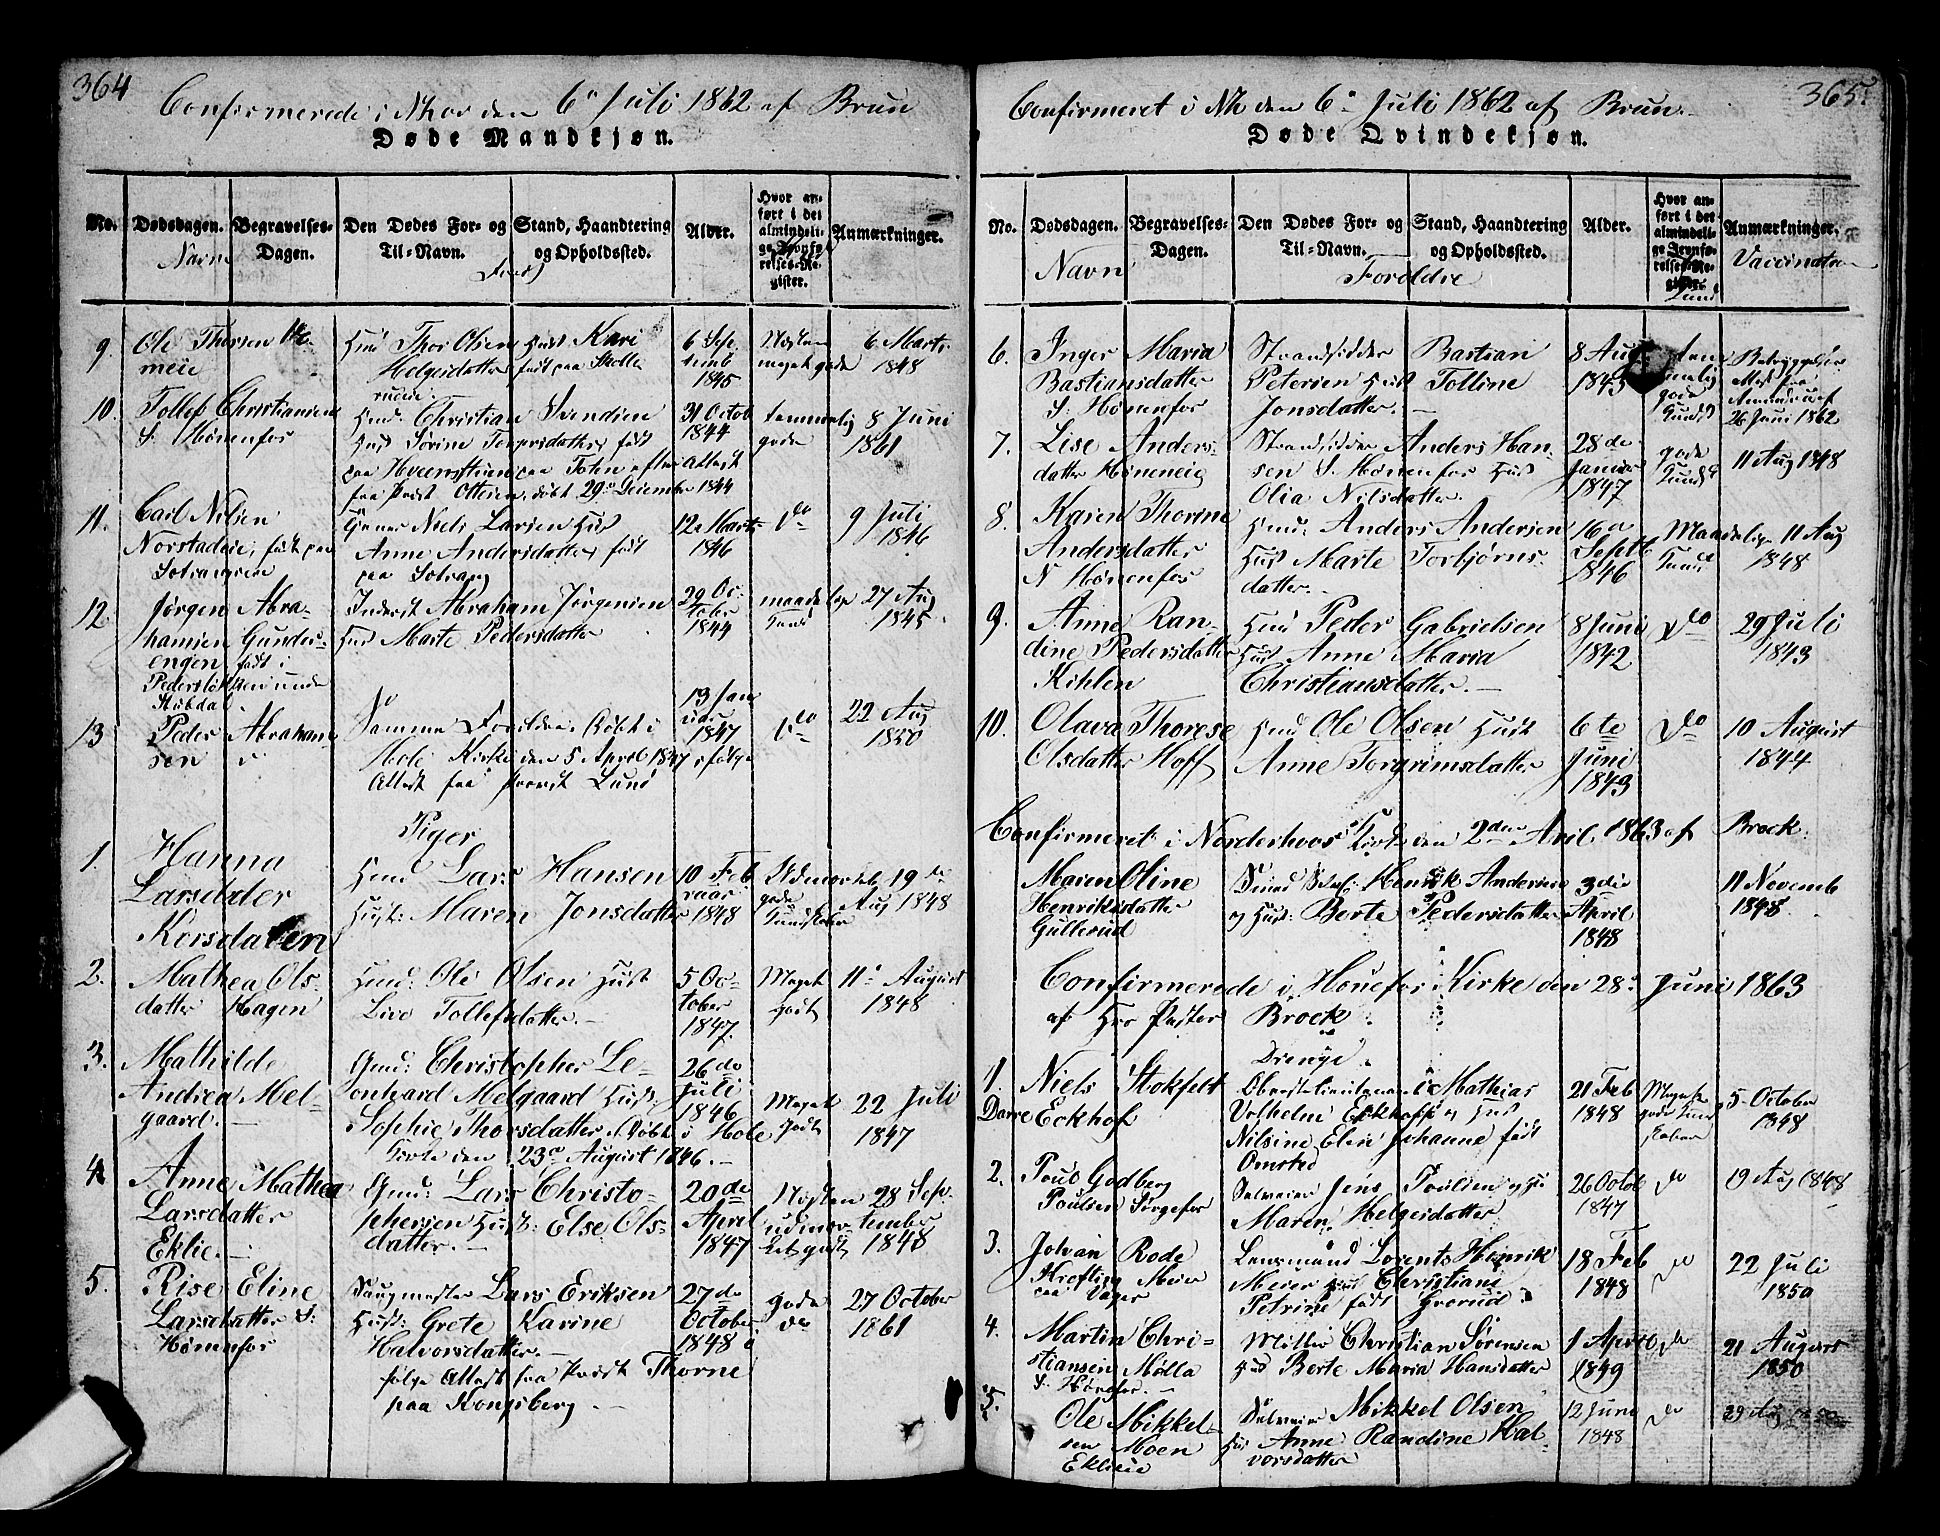 364
Confirmerede i den 6te Juli 1862 af Brun
Døde Mandkjøn.
No. Dødsdagen. Begravelses-Dagen. Den Dødes For- og Til-Navn. Stand, Haandtering og Opholdssted. Alder. Hvor anført i det almindelige Jevnførelses-Register. Anmærkninger.
Navn
9. Ole Thorsen
Thor Olsen Hust Kari
Helgesdatter født paa
6 Sep
1845
6 Marts
1848
10. Tollef Christiansen
S. Hønenfos
Christian Svendsen
Hust Sørine født
paa paa Toten efter Attest
fra Præst Ottesen, døbt 29 December 1844
31 Octob
1844
temmelig
gode
8 Juni
1861
11. Carl Nilsen
født paa
Niels Larsen Hust
Anne Andersdatter, født
paa
12 Marts
1846
do
9 Juli
1846
12. Jørgen Abra-
hamsen Gunders-
engen født i
Inderst Abraham Jørgensen
Hust Marte Pedersdatter
29 Oc-
tober
1844
27 Aug
1845
13 Peder Abraham
sen
Samme Forældre, døbt i
Hole Kirke den 5 April 1847 ifølge
Attest fra Provst Lund
13 Jan
uar
1847
do
22 Aug
1850
Piger
1. Hanna
Larsdatter
Korsdalen
Lars Hansen
Hust: Maren Jonsdatter
10 Feb
ruar
1848
gode
Kundskaber
19de
Aug 1848
2. Mathea Ols-
datter Hagen
Ole Olsen Hust
Live Tollefsdatter.
5 Oc-
tober
1847.
Meget
godt
11 August
1848
3. Mathilde
Andrea Mel-
gaard.
Christopher Le-
onhard Melgaard Hust:
Sophie Thorsdatter, døbt i Hole
Kirke den 23 August 1846.
26de
Juli
1846
Meget
godt
22 Juli
1847
4. Anne Mathea
Larsdatter
Eklie.
Lars Christo-
phersen Hust: Else Ols-
datter.
20de
April
1847
Næsten
udmær-
ket godt
28 Sep-
tember
1848
5. Rise Eline
Larsdatter S.
Hønenfos
Saugmester Lars Eriksen
Hust: Grete Karine
Halvorsdatter.
følge Attest fra Præst Thorne
paa Kongsberg.
27de
October
1848
gode
do
27 October
1861
365.
Confirmeret i den 6 Juli 1862 af Brun.
Døde Qvindekjøn.
No. Dødsdagen. Begravelses-Dagen. Den Dødes For- og Til-Navn. Stand, Haandtering og Opholdssted. Alder. Hvor anført i det almindelige Jevnførelses-Register. Anmærkninger.
Navn
Forældre
6. Inger Maria
Bastiansdatter
S. Hønenfos
Strandsidder Bastian
Petersen Hust Tolline
Jonsdatter.
8 Aug
1845
26 Juni 1862
7. Lise Anders-
datter
Strandsidder Anders Han-
sen S. Hønenfos Hust
Olia Nilsdatter.
28de
Januar
1847
gode
11 Aug 1848
8. Karen Thorine
Andersdatter
N Hønenfos
Anders Andersen
Hust Marte Torbjørns-
datter.
16
Septb
1846
Maadelige
11 Aug
1848
9. Anne Ran-
dine Pedersdatter
Kihlen
Peder Gabrielsen
Hust Anne Maria
Christiansdatter.
8 Juni
1842
do
29 Juli
1843
10. Olava Thorese
Olsdatter Hoff
Ole Olsen Hust
Anne Torgrimsdatter
6te
Juni
1843
do
10 August
1844
Confirmeret i Norderhovs Kirke den 2den April 1863 af Brock.
Maren Oline
Henriksdatter
Gullerud
Henrik Andersen
og Hust: Berte Pedersdatter
3die
April
1848
11 Novemb
1848.
Confirmerede i Hønefos Kirke den 28 Juni 1863
af Hrr Pastor Brock
Drenge.
1. Niels Stokfelt
Darre Eckhof
Oberstlieutenant Mathias
Vilhelm Eckhoff og Hust
Nilsine Elen Johanne født
Omsted
21 Feb
1848
Meget
gode Kund
skaber
5 October
1848
2. Poul Godberg
Poulsen
Jens Poulsen og Hu
Maren Helgesdatter
26 Octob
1847
do
19 Aug 1848
3. Johan Rode
Krefting Meier
paa Vager
Lensmand Lorents Henrik
Meier Hust Christiane
Petrine født Grorud
18 Feb
1848
do
22 Juli
1850
4. Martin Chri-
stiansen Mølla
S. Hønefos.
Møller Christian Sørensen
Hust Berte Maria Hansdatter
1 April
1849
do
21 August
1850
5. Ole Mikkel-
sen Moen
Eklieie
Mikkel Olsen
Hus Anne Randine Hal-
vorsdatter
12 Juni
1848
do
29 Aug